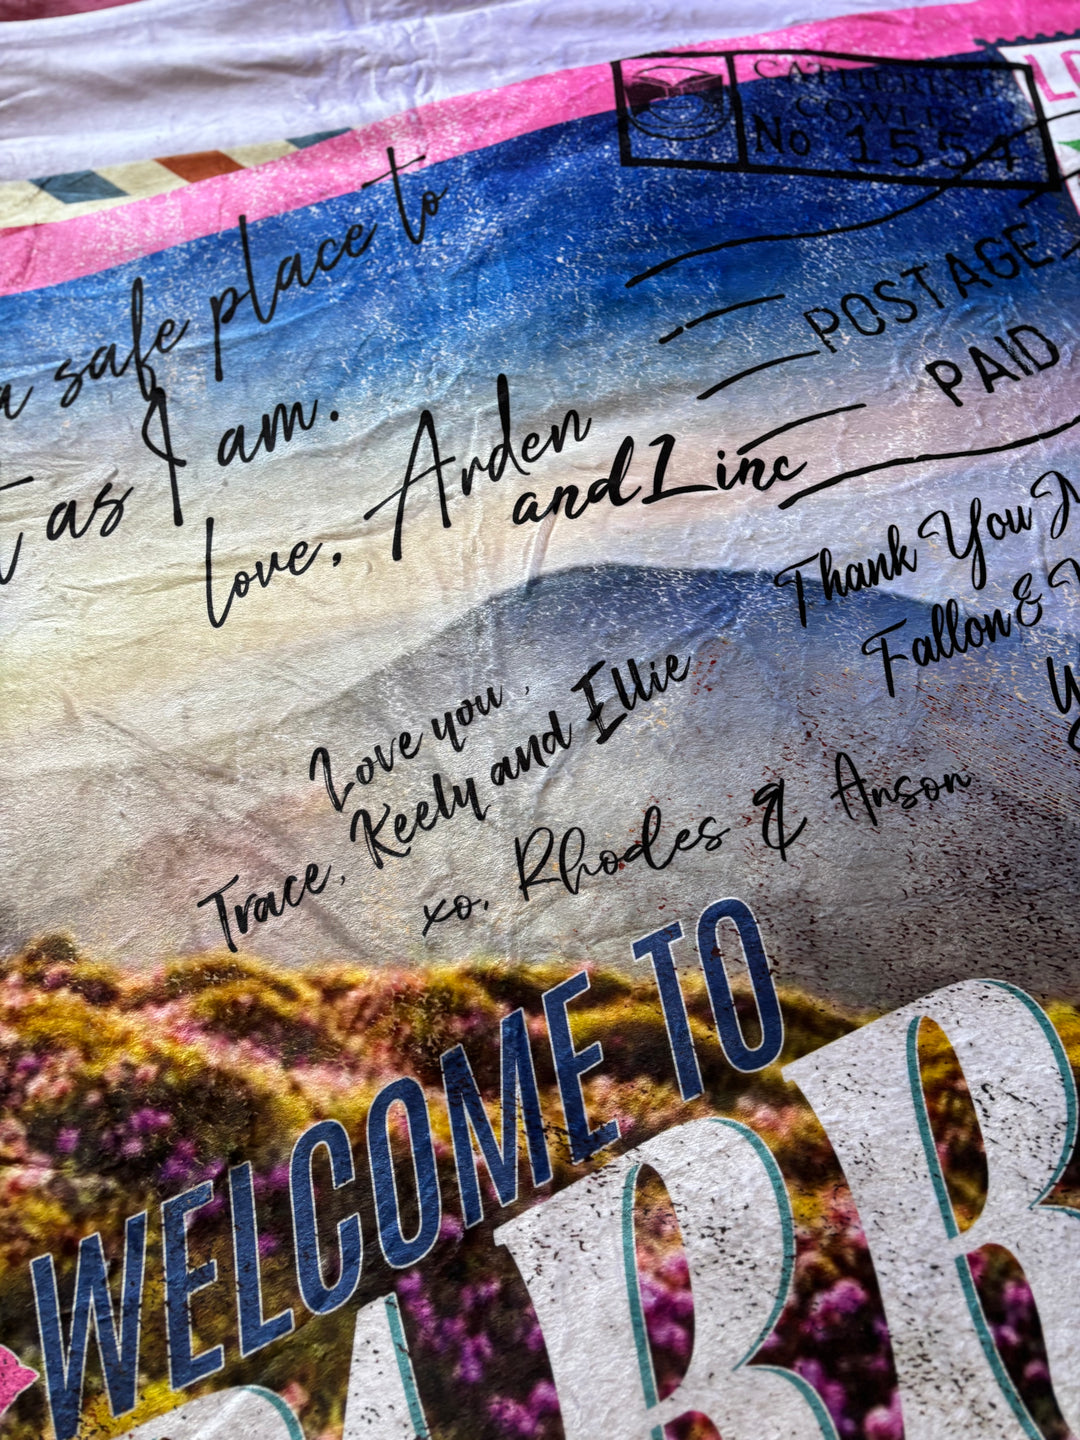 CATHERINE
COWLES
No 1554
POSTAGE
PAID
safe place to
as I am.
love, Arden
and Linc
Thank You
Fallon &
Love you,
Trace, Keely and Ellie
xo, Rhodes & Anson
WELCOME TO